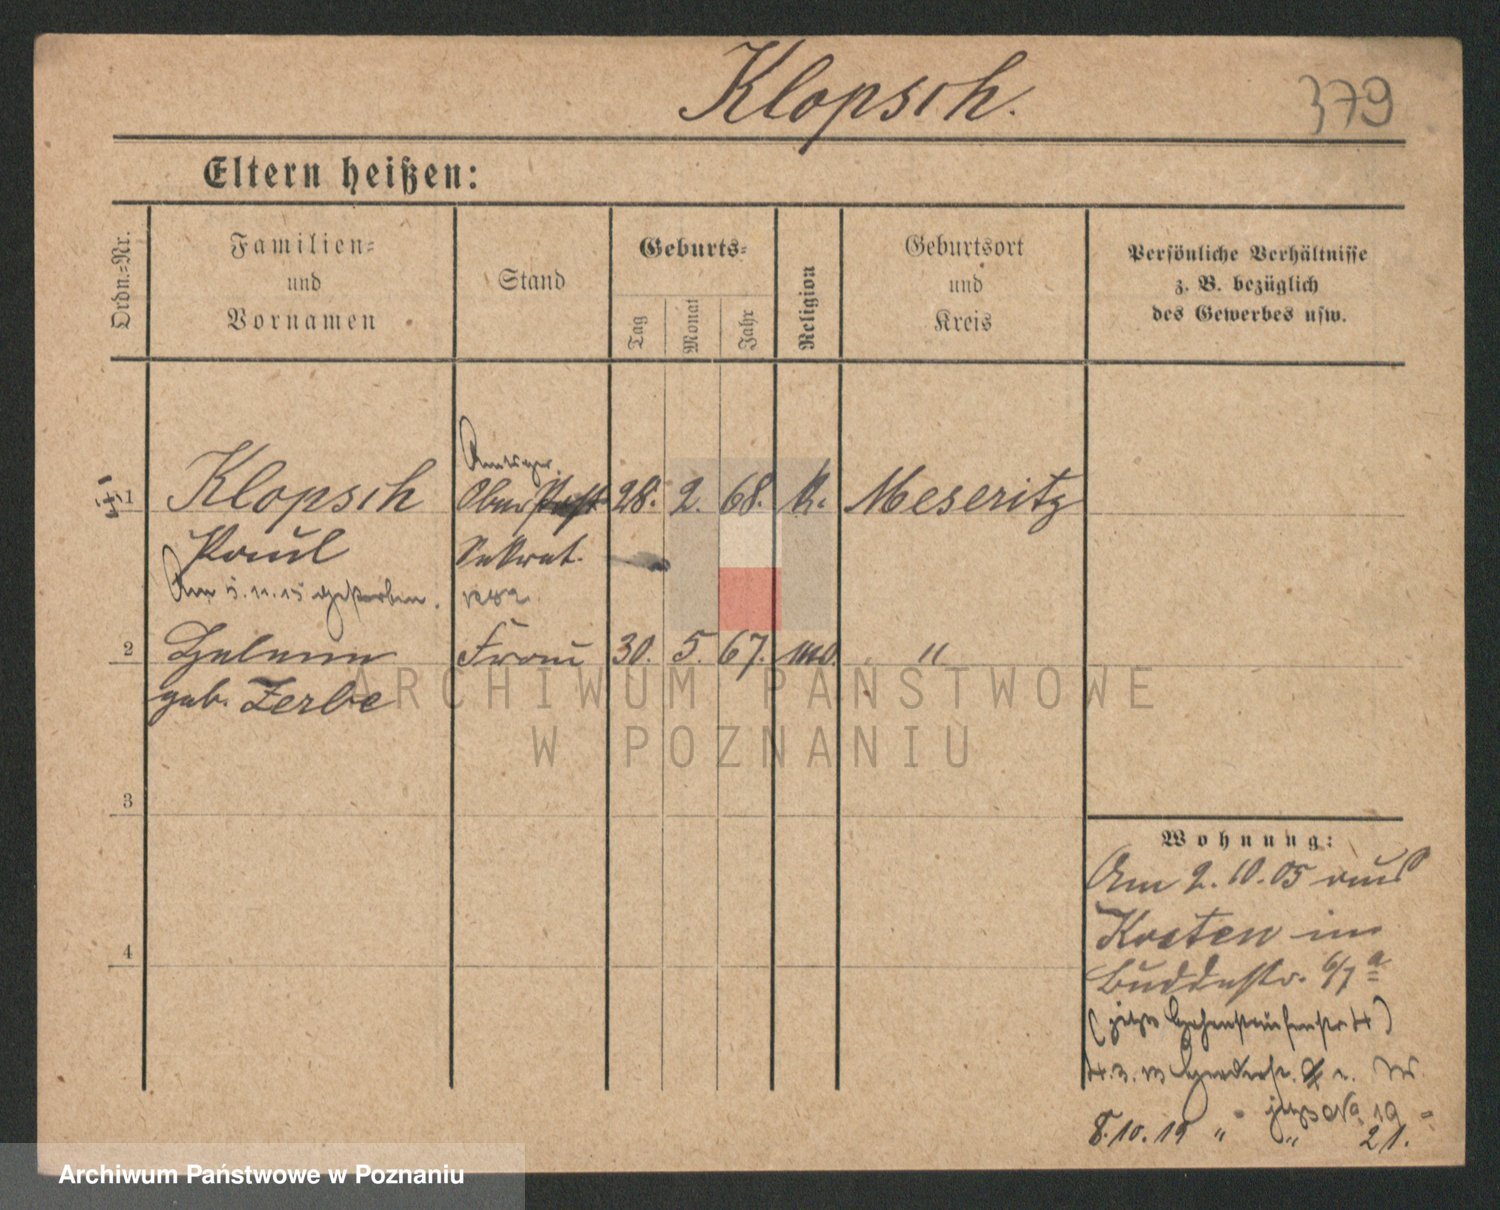 Klopsch.
379
Eltern heißen:
Ordn.=Nr.
Familien=
und
Vornamen
Stand
Geburts=
Tag
Monat
Jahr
Religion
Geburtsort
und
Kreis
Persönliche Verhältnisse
z. B. bezüglich
des Gewerbes usw.
1
Klopsch
Ober
28. 2. 68. k. Meseritz
Paul
Sekret.
Am 5.11.15 gestorben.
2
Helene Frau 30. 5. 67. "
geb. Zerbe
3
4
Wohnung:
Am 2.10.05 aus
Kosten in
Buddestr. 6/7 a
(jetzt Hohenstaufenstr 4)
jetzt No 19
8.10.19 " " 21.
ARCHIWUM PAŃSTWOWE
W POZNANIU
Archiwum Państwowe w Poznaniu